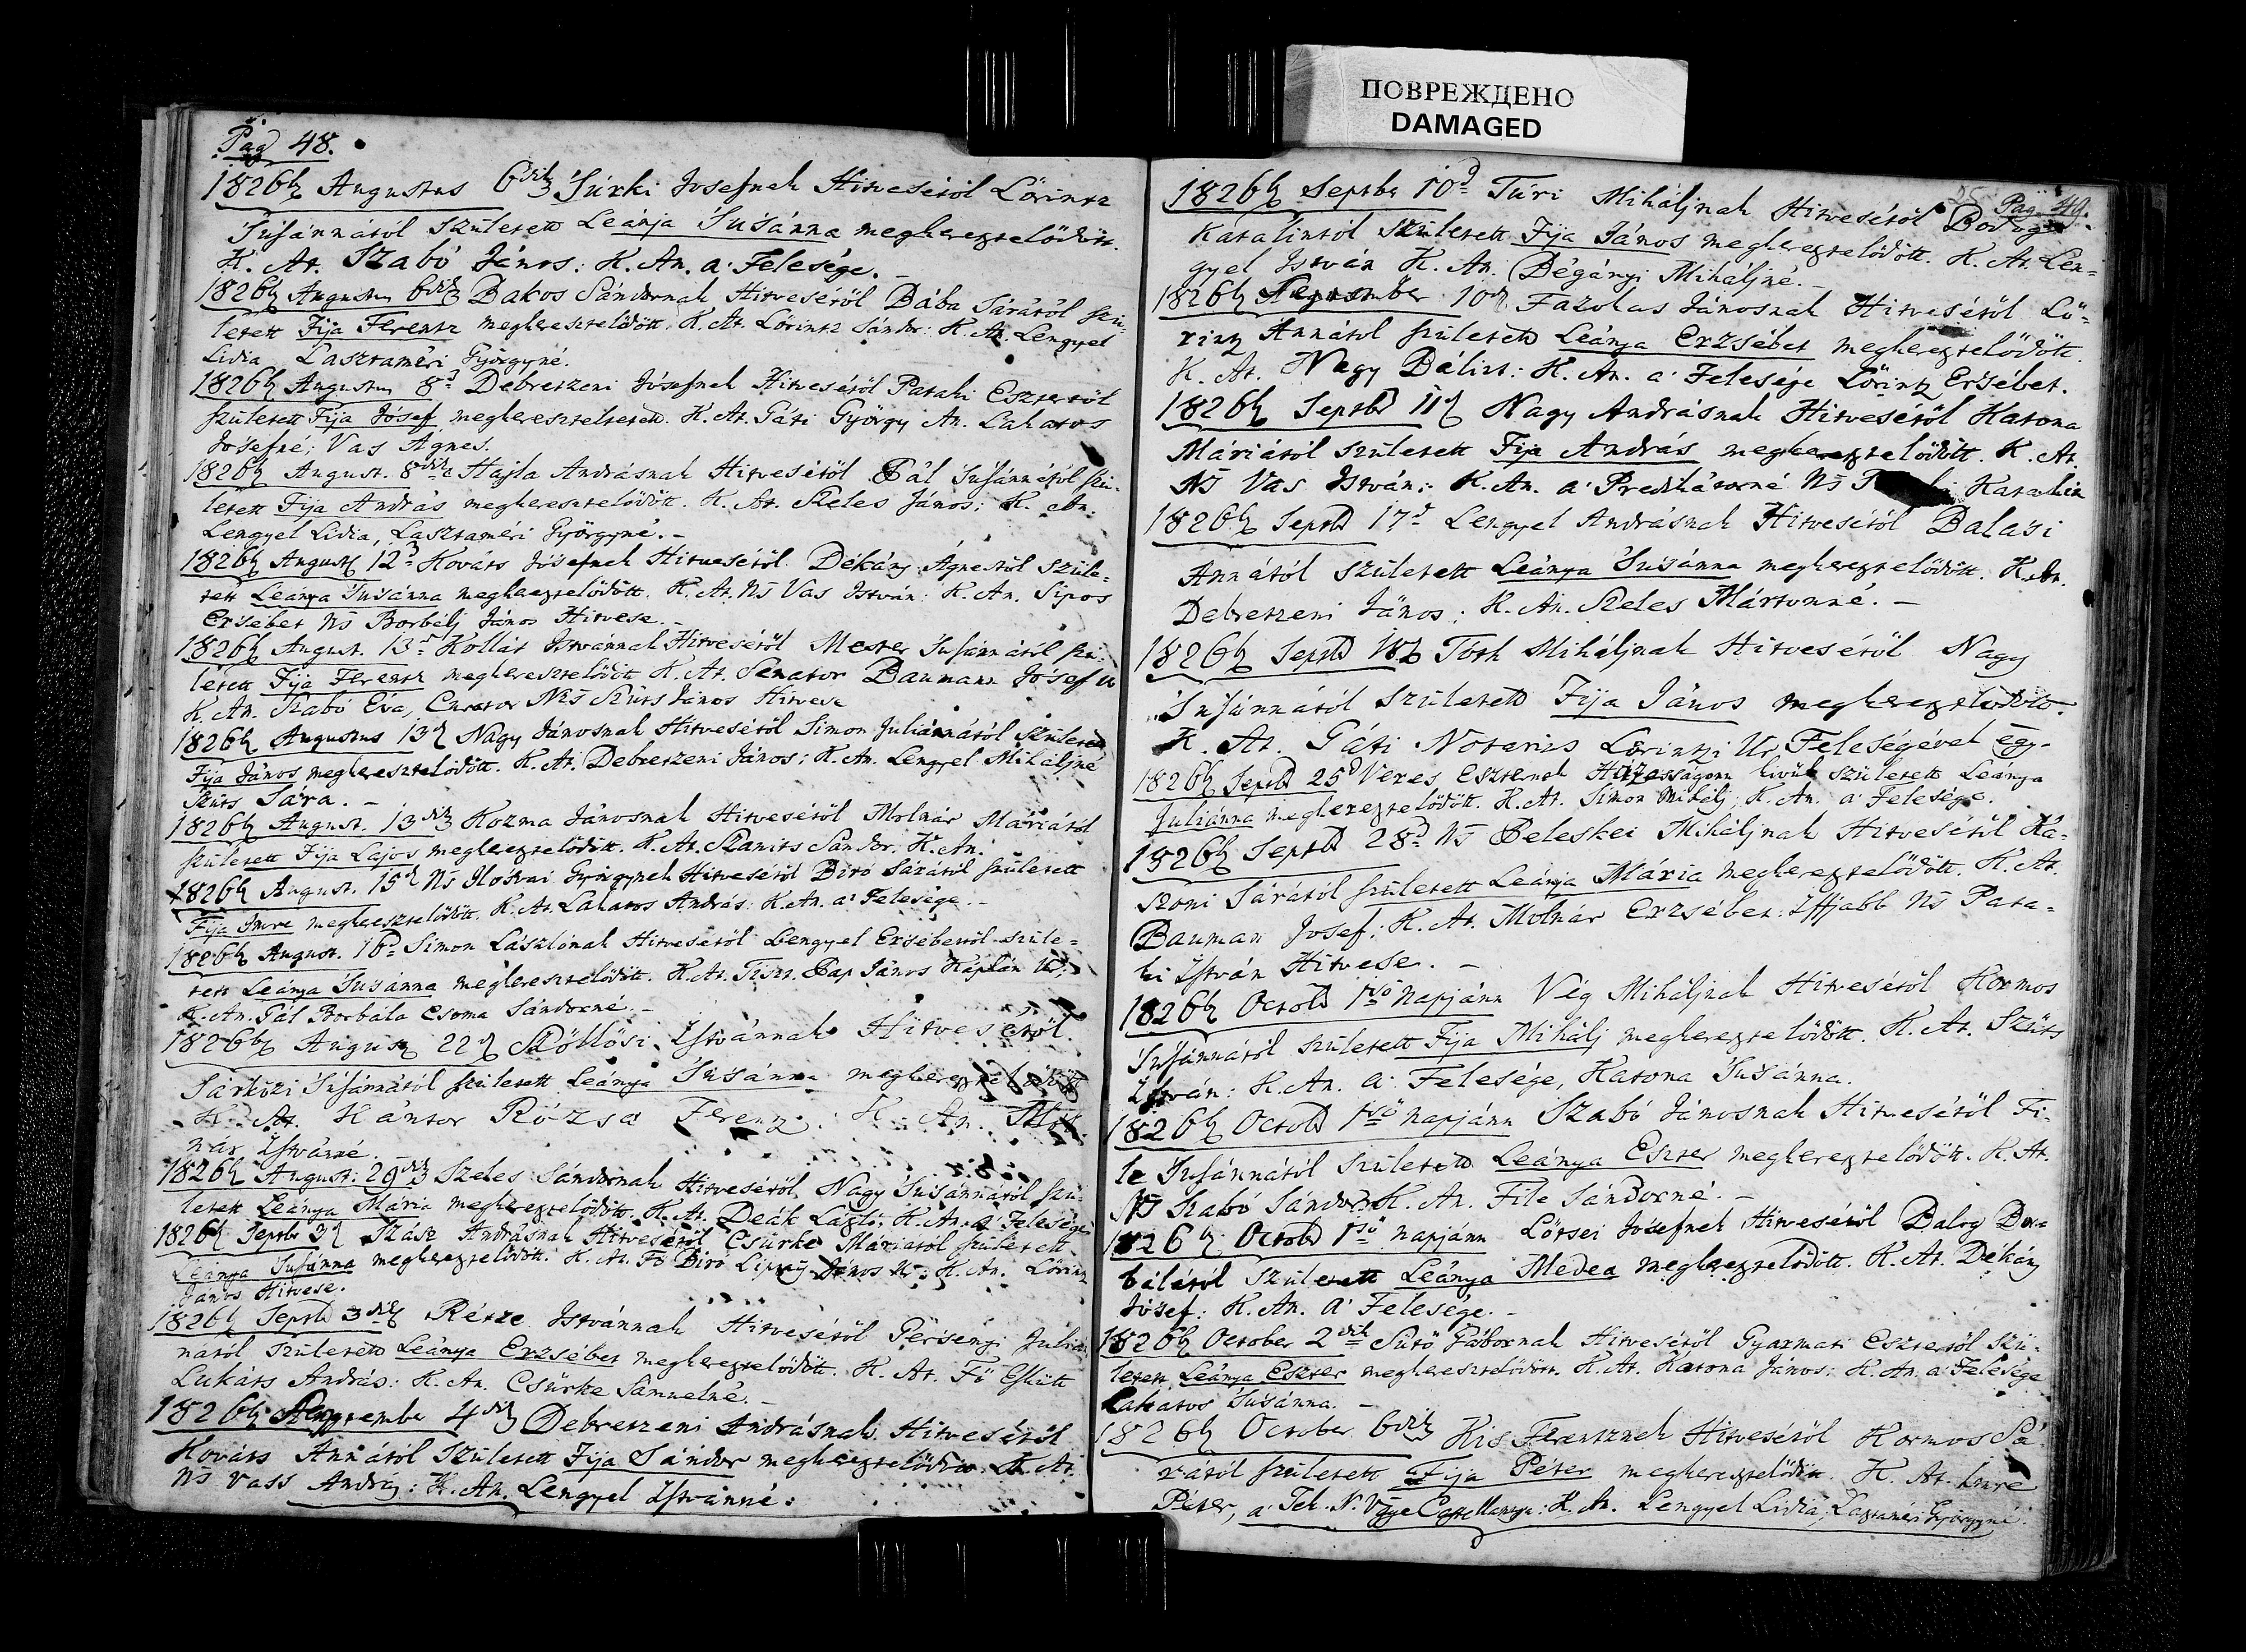 ПОВРЕЖДЕНО
DAMAGED
Pag 48.
1826b Augustus 6dik Súrki Josefnek Hitvesétöl Lörintz
Susánnától született Leánja Susánna megkeresztelödött.
K. At. Szabó János: K. An. a' Felesége.
1826b Augustus 6dik Bakos Sándornak Hitvesétöl Bába Sárától szü-
letett Fija Ferentz megkeresztelödött. K. At. Lörintz Sándor: K. An. Lengyel
Lidia Lasztaméri Györgyné.
1826b Augustus 8d Debretzeni Jósefnek Hitvesétöl Pataki Esztertöl
született Fija Jósef megkereszteltetett. K. At. Gáti György An. Lakatos
Jósefné; Vas Agnes.
1826b August. 8dik Hajla Andrásnak Hitvesétöl Pál Susánnától szü-
letett Fija András megkeresztelödött. K. At. Szeles János; K. An.
Lengyel Lidia, Lasztaméri Györgyné.
1826b August 12d Kováts Jósefnek Hitvesétöl Dékány Ágnestöl szüle-
tett Leánya Susánna megkeresztelödött. K. At. Ns Vas István: K. An. Sipos
Ersébet Ns Borbélj János Hitvese.
1826b August. 13d Kollát Istvánnak Hitvesétöl Mester Susánnától szü-
letett Fija Ferentz megkeresztelödött K. At. Senator Baumann Josef Ur
K. An. Szabó Éva, Curator Ns Szüts János Hitvese
1826b Augustus 13d Nagy Jánosnak Hitvesétöl Simon Juliánnától született
Fija János megkeresztelödött. K. At. Debretzeni János; K. An. Lengyel Miháljné
Szüts Sára.
1826b August. 13dik Kozma Jánosnak Hitvesétöl Molnár Máriától
született Fija Lajos megkeresztelödött. K. At. Szanits Sándor. K. An.
1826b August. 15d Ns Ilosvai Györgynek Hitvesétöl Biró Sárától született
Fija Imre megkeresztelödött. K. At. Lakatos András: K. An. a' Felesége.
1826b August. 16d Simon Lászlónak Hitvesétöl Lengyel Ersébettöl szüle-
tett Leánja Susánna megkeresztelödött. K. At. Tiszt. Pap János Káplán Ur;
K. An. Pál Borbála Csoma Sándorné.
1826b August 22d Szöllösi Istvánnak Hitvesétöl
Sárközi Susánnától született Leánya Susánna megkeresztelödött
K. At. Kántor Rózsa Ferentz: K. An. Mol-
nár Istvánné.
1826b August: 29dik Szeles Sándornak Hitvesétöl Nagy Susánnától szü-
letett Leánya Mária megkeresztelödött. K. At. Deák Lázló: K. An. a' Felesége
1826b Septbr 3d Szász Andrásnak Hitvesétöl Csürke Máriától született
Leánya Susánna megkeresztelödött. K. At. Fö Biró János Ur: K. An. Lörintz
János Hitvese.
1826b Septb 3dik Istvánnak Hitvesétöl Persenyi Julián-
nától született Leánya Erzsébet megkeresztelödött. K. At. Fö Esküt
Lukáts András: K. An. Csürke Sámuelné.
1826b September 4dik Debretzeni Andrásnak Hitvesétöl
Kováts Annától született Fija Sándor megkeresztelödött. K. At.
Ns Vass András: K. An. Lengyel Istvánné.
25 Pag. 49.
1826b Septbr 10d Túri Miháljnak Hitvesétöl Bodog
Katalintól született Fija János megkeresztelödött. K. At. Len-
gyel István K. An. Dégányi Miháljné.
1826b September 10d Fazokas Jánosnak Hitvesétöl Lö-
rintz Annától született Leánya Erzsébet megkeresztelödött.
K. At. Nagy Bálint: K. An. a' Felesége Lörintz Ersébet.
1826b Septb 11d Nagy Andrásnak Hitvesétöl Katona
Máriától született Fija András megkeresztelödött. K. At.
Ns Vas István: K. An. a' Predikátorné Ns Katalin
1826b Septb 17d Lengyel Andrásnak Hitvesétöl Balasi
Annától született Leánya Susánna megkeresztelödött. K. At.
Debretzeni János; K. An. Szeles Mártonné.
1826b Septb 18d Tóth Miháljnak Hitvesétöl Nagy
Susánnától született Fija János megkeresztelödött.
K. At. Gáti Notarius Lörintzi Ur Feleségével egy-
1826b Septb 25d Veres Eszternek Házasságonn kivül született Leánya
Juliánna megkeresztelödött. K. At. Simon Mihálj; K. An. a' Felesége.
1826b Septb 28d Ns Beleskei Miháljnak Hitvesétöl Ká-
szoni Sárától született Leánja Mária megkeresztelödött. K. At.
Bauman Josef: K. At. Molnár Erzsébet: Iffjabb Ns Pata-
ki István Hitvese.
1826b Octob 1sö Napjánn Vég Miháljnak Hitvesétöl Kormos
Susánnától született Fija Mihálj megkeresztelödött. K. At. Szüts
István: K. An. a' Felesége, Katona Susánna.
1826b Octob 1sö napjánn Szabó Jánosnak Hitvesétöl Fi-
le Susánnától született Leánya Eszter megkeresztelödött. K. At.
Ns Szabó Sándor: K. An. File Sándorné.
1826b Octob 1sö napjánn Lötsei Jósefnek Hitvesétöl Balog Bor-
bálától született Leánya Medea megkeresztelödött. K. At. Dékány
Jósef: K. An. a' Felesége.
1826b October 2dik Sütö Gábornak Hitvesétöl Gyarmati Esztertöl szü-
letett Leánya Eszter megkeresztelödött. K. At. Katona János: K. An. a' Felesége
Lakatos Susánna.
1826b October 6dik Kis Ferentznek Hitvesétöl Kormos Sá-
rától született Fija Péter megkeresztelödött. K. At. Imre
Péter, a' Tek. N. Castellanya: K. An. Lengyel Lidia; Lasztaméri Györgyné.